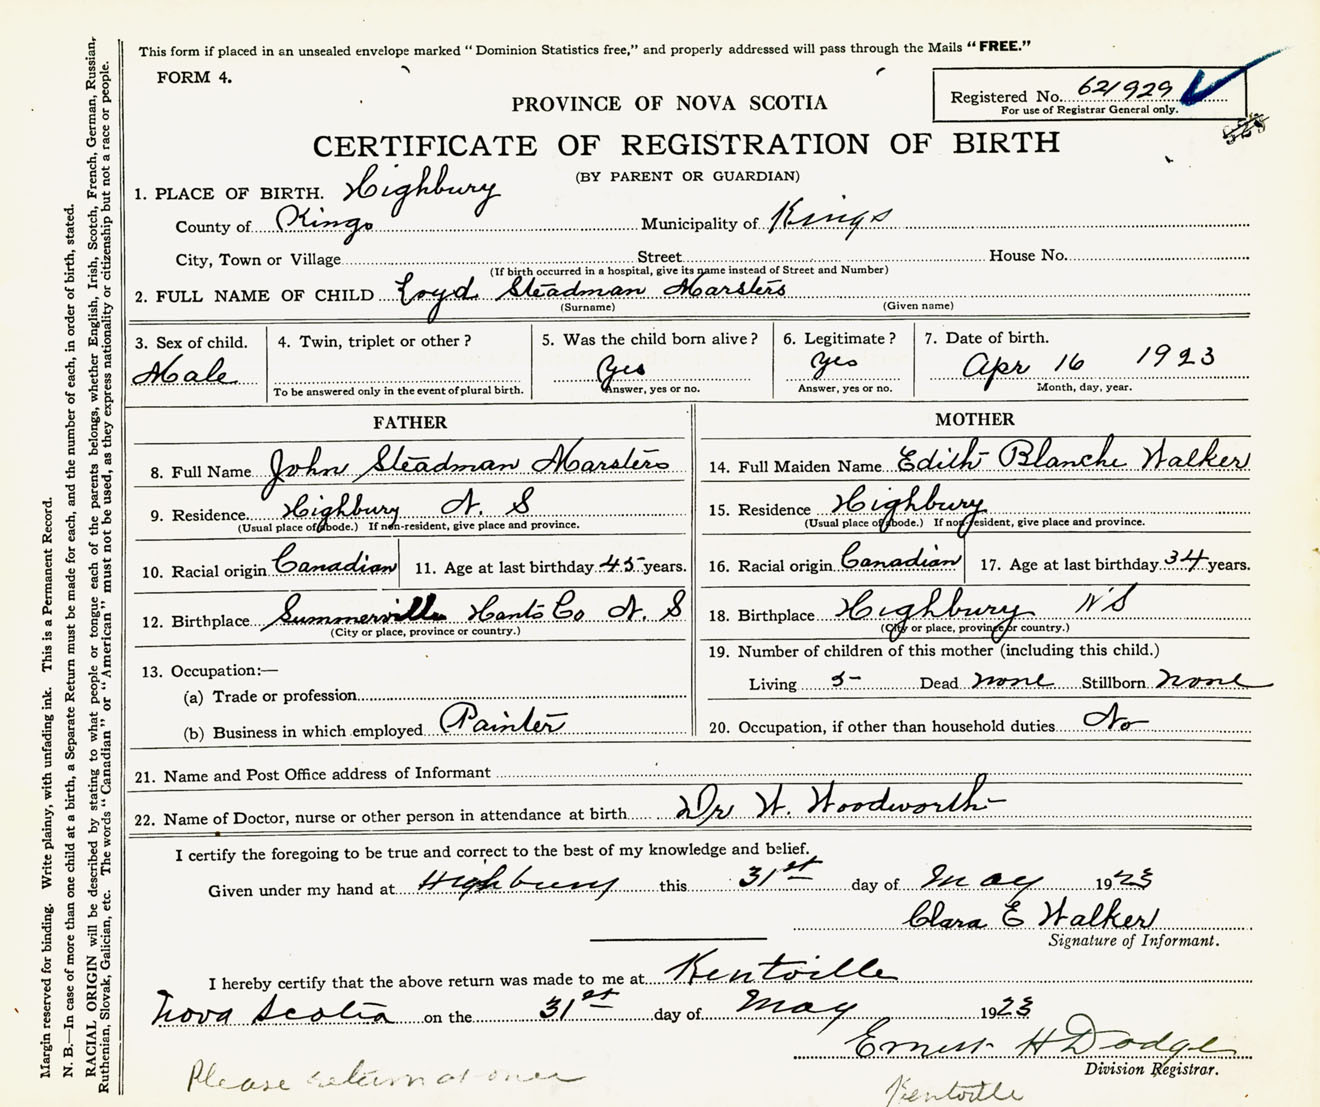 This form if placed in an unsealed envelope marked "Dominion Statistics free," and properly addressed will pass through the Mails "FREE."
FORM 4.
Registered No. 621929
For use of Registrar General only.
PROVINCE OF NOVA SCOTIA
CERTIFICATE OF REGISTRATION OF BIRTH
(BY PARENT OR GUARDIAN)
1. PLACE OF BIRTH. Highbury
County of Kings Municipality of Kings
City, Town or Village Street House No.
(If birth occurred in a hospital, give its name instead of Street and Number)
2. FULL NAME OF CHILD Loyd Steadman Marsters
(Surname) (Given name)
3. Sex of child. 4. Twin, triplet or other? 5. Was the child born alive? 6. Legitimate? 7. Date of birth.
Male Yes Yes Apr 16 1923
To be answered only in the event of plural birth. Answer, yes or no. Answer, yes or no. Month, day, year.
FATHER
8. Full Name John Steadman Marsters
9. Residence Highbury N. S
(Usual place of abode.) If non-resident, give place and province.
10. Racial origin Canadian 11. Age at last birthday 45 years.
12. Birthplace Summerville Hants Co N. S
(City or place, province or country.)
13. Occupation:—
(a) Trade or profession
(b) Business in which employed Painter
MOTHER
14. Full Maiden Name Edith Blanche Walker
15. Residence Highbury
(Usual place of abode.) If non-resident, give place and province.
16. Racial origin Canadian 17. Age at last birthday 34 years.
18. Birthplace Highbury N S
(City or place, province or country.)
19. Number of children of this mother (including this child.)
Living 5- Dead none Stillborn none
20. Occupation, if other than household duties No
21. Name and Post Office address of Informant
22. Name of Doctor, nurse or other person in attendance at birth Dr W. Woodworth
I certify the foregoing to be true and correct to the best of my knowledge and belief.
Given under my hand at Highbury this 31st day of May 1923
Clara E Walker
Signature of Informant.
I hereby certify that the above return was made to me at Kentville
Nova Scotia on the 31st day of May 1923
Ernest H Dodge
Division Registrar.
Please return at once
Kentville
Margin reserved for binding. Write plainly, with unfading ink. This is a Permanent Record.
N. B.—In case of more than one child at a birth, a Separate Return must be made for each, and the number of each, in order of birth, stated.
RACIAL ORIGIN will be described by stating to what people or tongue each of the parents belongs, whether English, Irish, Scotch, French, German, Russian,
Ruthenian, Slovak, Galician, etc. The words "Canadian" or "American" must not be used, as they express nationality or citizenship but not a race or people.